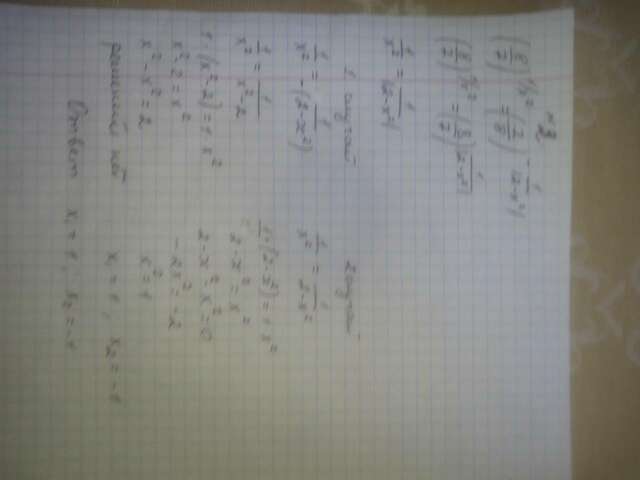 №2
(8/7)^(1/x²) = (7/8)^(-1/|2-x²|)
(8/7)^(1/x²) = (8/7)^(1/|2-x²|)
1/x² = 1/|2-x²|
1 случай
1/x² = 1/-(2-x²)
1/x² = 1/x²-2
1·(x²-2) = 1·x²
x²-2 = x²
x²-x² = 2
решений нет
2 случай
1/x² = 1/2-x²
1·(2-x²) = 1·x²
2-x² = x²
2-x²-x² = 0
-2x² = -2
x² = 1
x₁ = 1, x₂ = -1
Ответ x₁ = 1; x₂ = -1